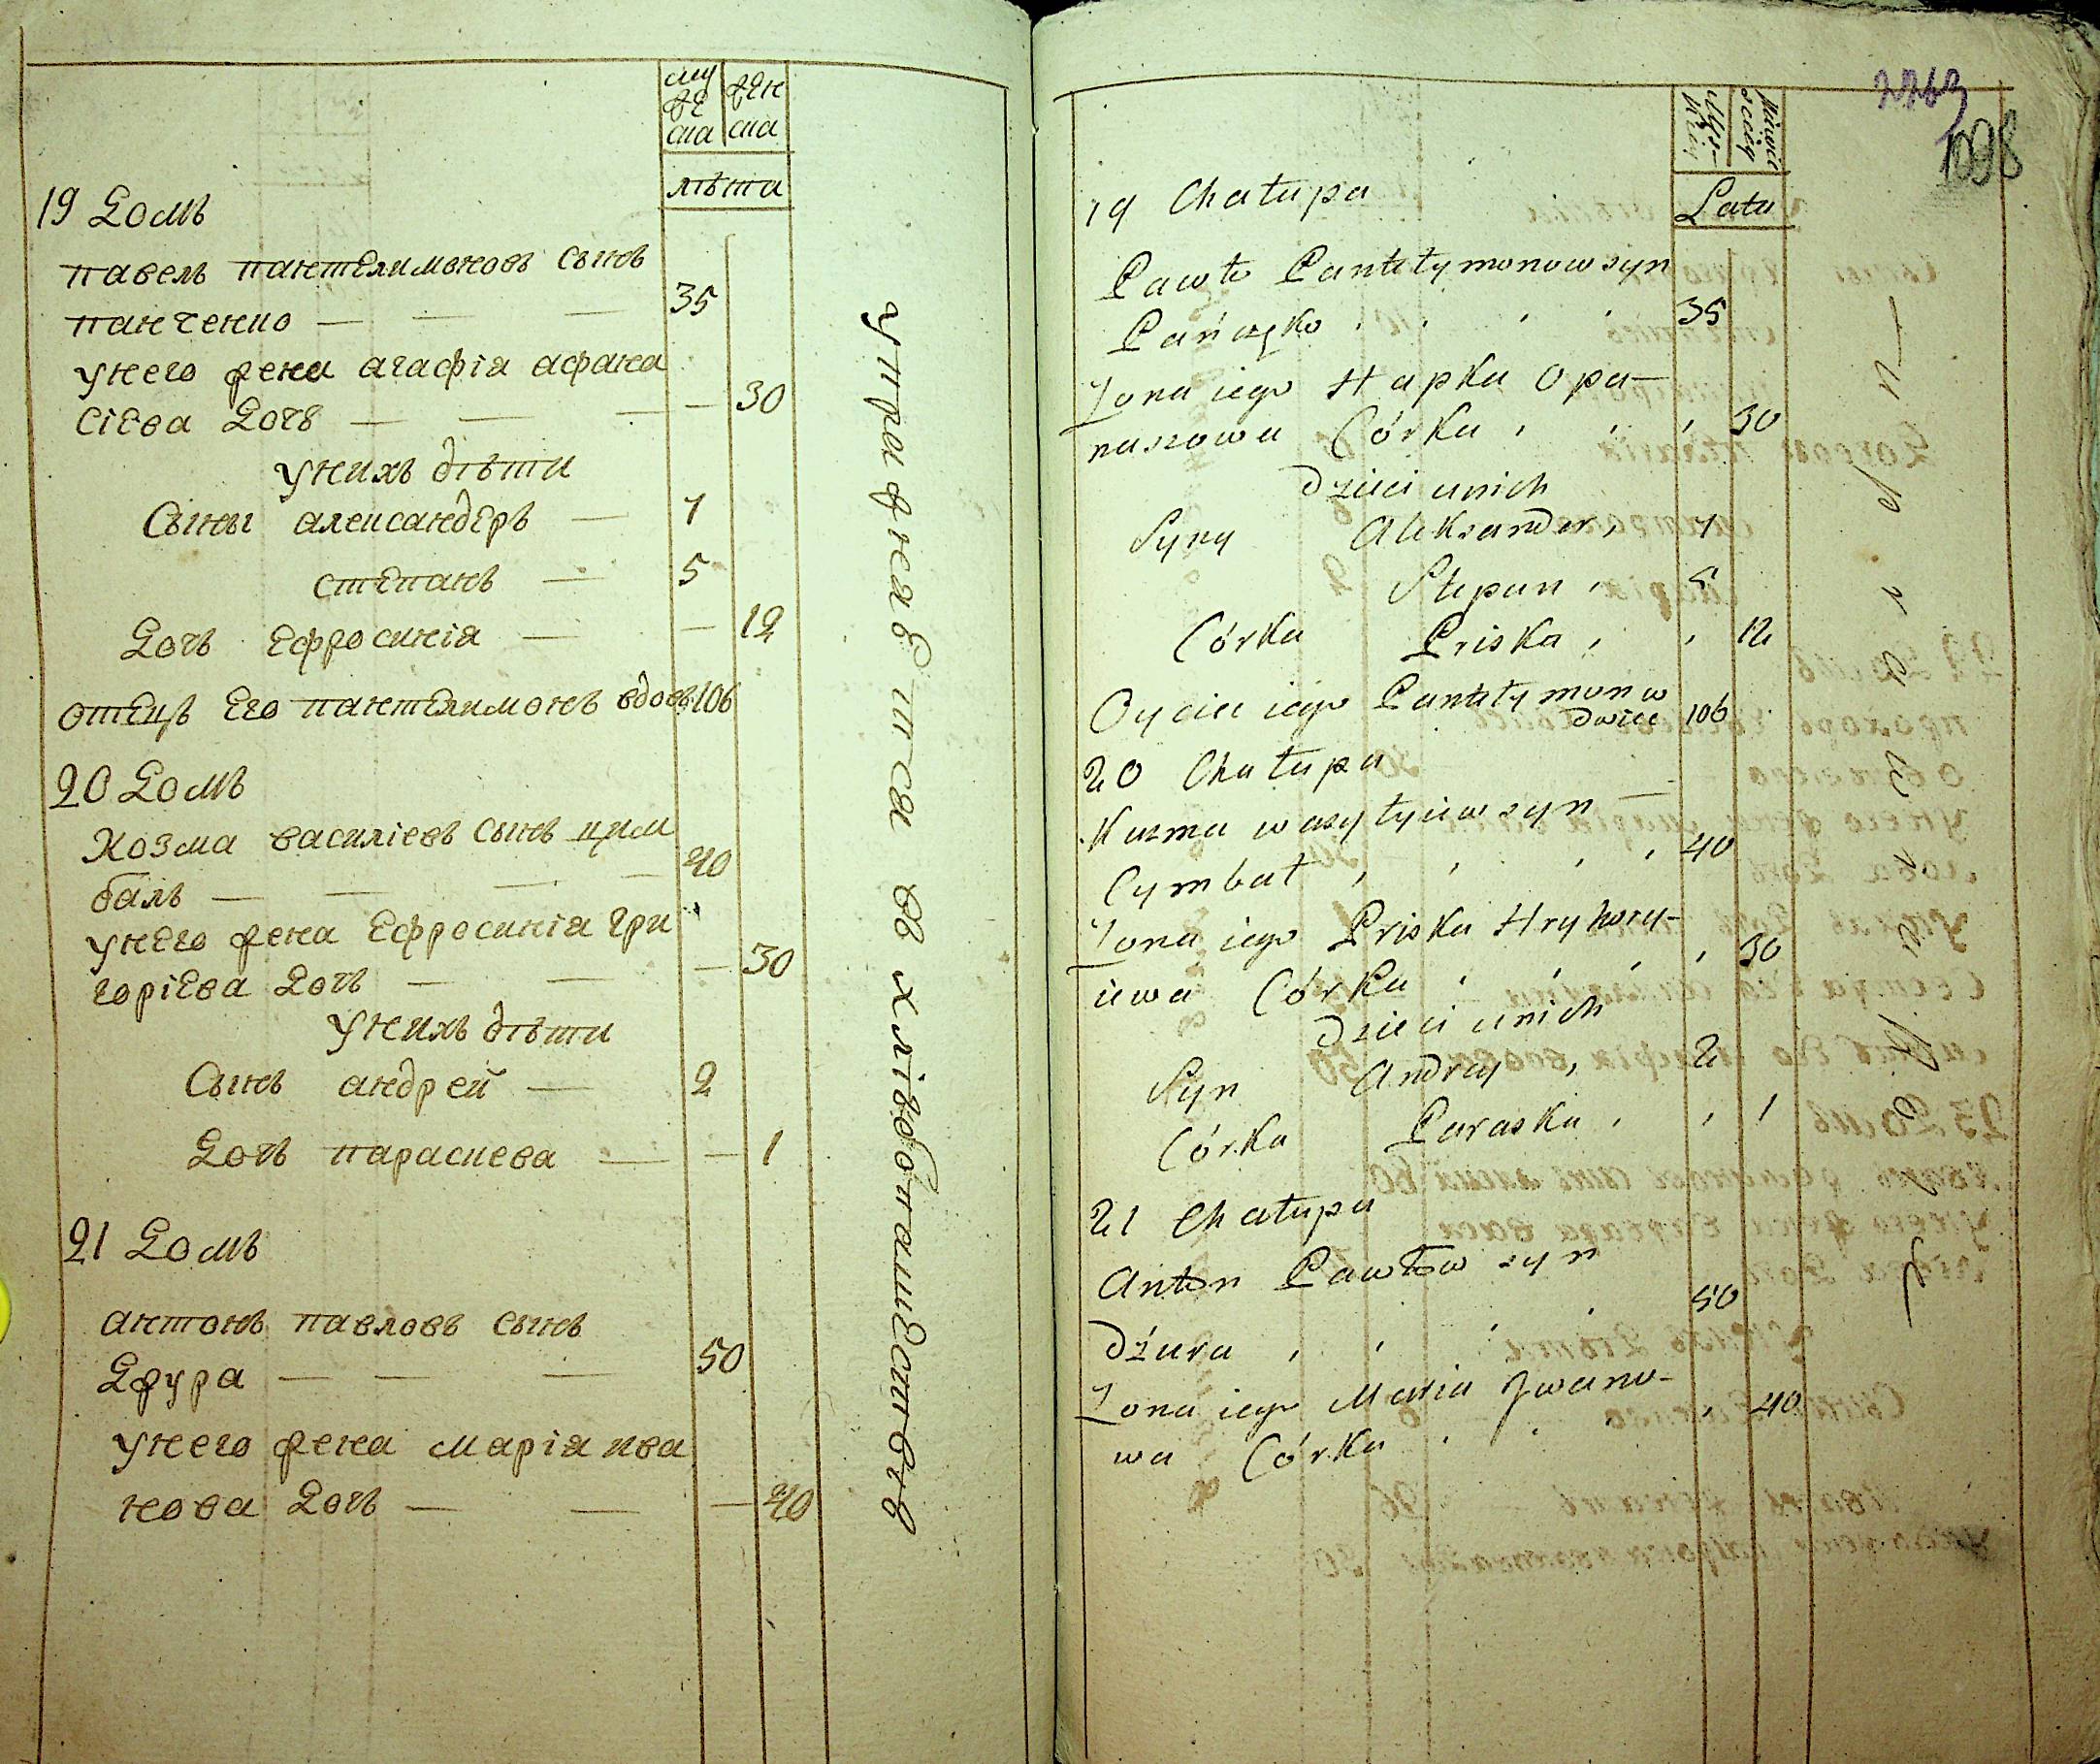 муже
ска
жен
ска
лѣта
19 Домъ
павелъ пантелимоновъ сынъ
панченко — — — 35
унего жена агафія афана
сіева дочь — — — — 30
унихъ дѣти
Сыны александеръ — 7
степанъ — 5
Дочь Ефросинія — — 12
отецъ Его пантелимонъ вдовъ 106
20 Домъ
Козма василіевъ сынъ цим
балъ — — — — 40
унего жена Ефросинія гри
горіева дочь — — — 30
унихъ дѣти
Сынъ андрей — 2
Дочь параскева — — 1
21 Домъ
антонъ павловъ сынъ
Джура — — — 50
унего жена марія ива
нова дочь — — — 40
упражняется въ хлібопашествѣ
1098
Lata
19 Chałupa
Pawło Pantełymonow syn
Pańczęko 35
Żona iego Hapka Opa-
naszowa Córka 30
Dzieci unich
Syny Alexander 7
Stepan 5
Córka Priska 12
Oyciec iego Pantełymon w
dwiec 106
20 Chałupa
Kuzma wasylyiew syn —
Cymbał 40
Żona iego Priska Hryhory-
iewa Córka 30
Dzieci unich
Syn Andrey 2
Córka Paraska 1
21 Chałupa
Anton Pawłow syn
Dżura 50
Żona iego Maria Jwano-
wa Córka 40